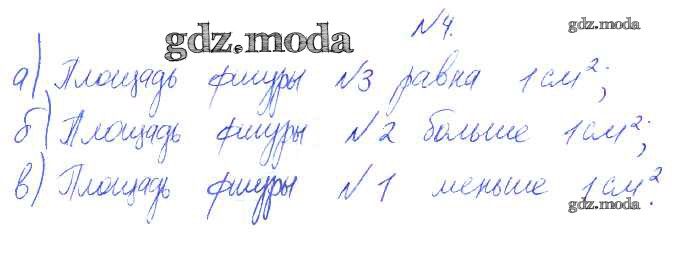 №4.
gdz.moda
gdz.moda
а) Площадь фигуры №3 равна 1 см²;
б) Площадь фигуры №2 больше 1 см²;
в) Площадь фигуры №1 меньше 1 см².
gdz.moda